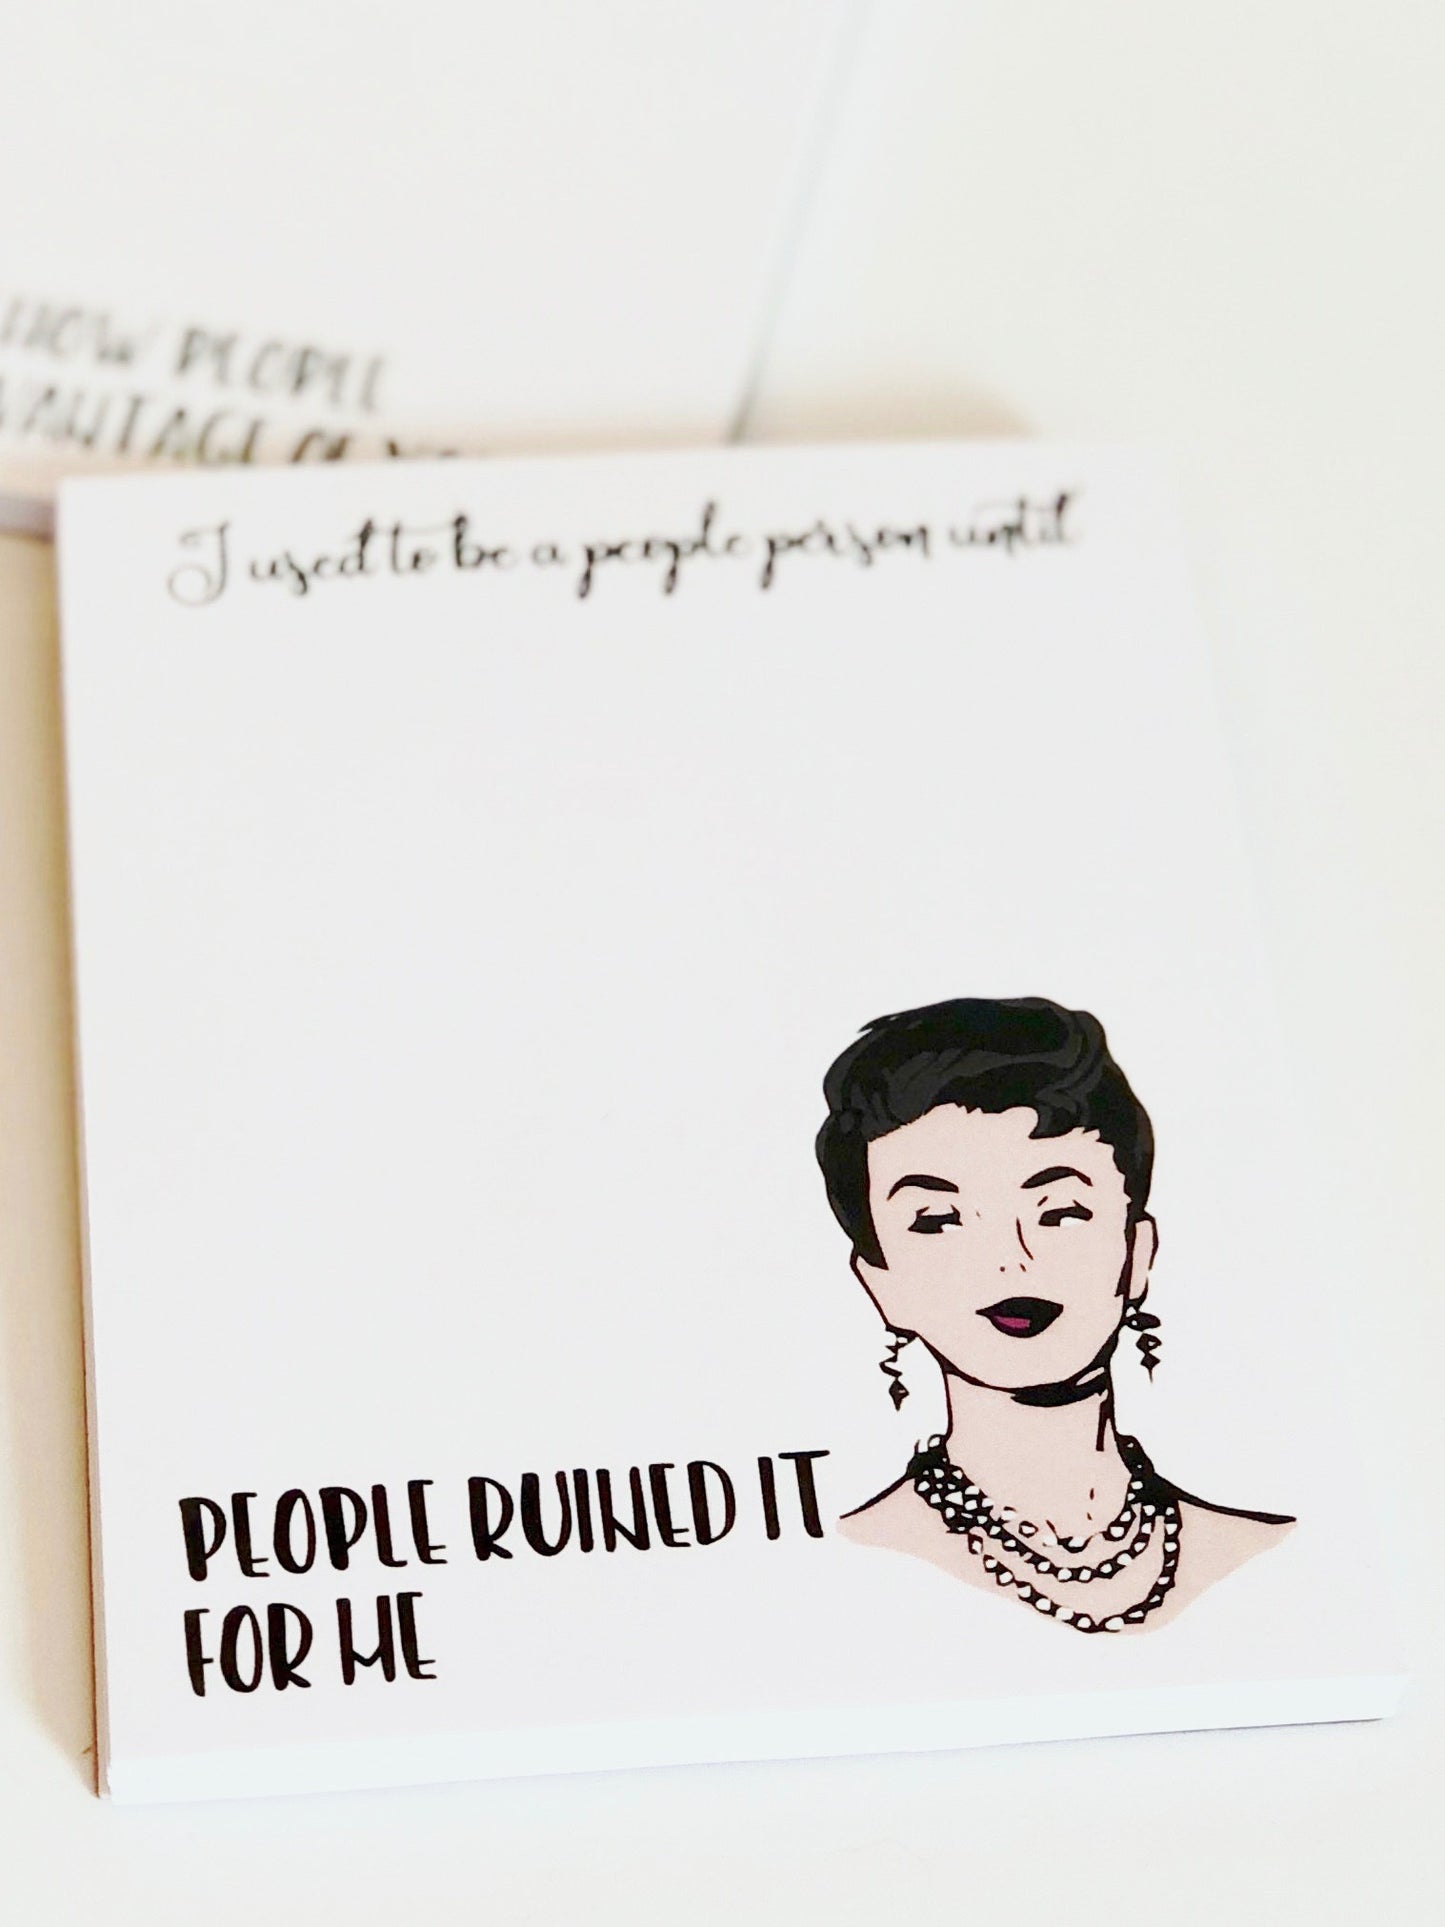 HOW PEOPLE
I used to be a people person until
PEOPLE RUINED IT
FOR ME